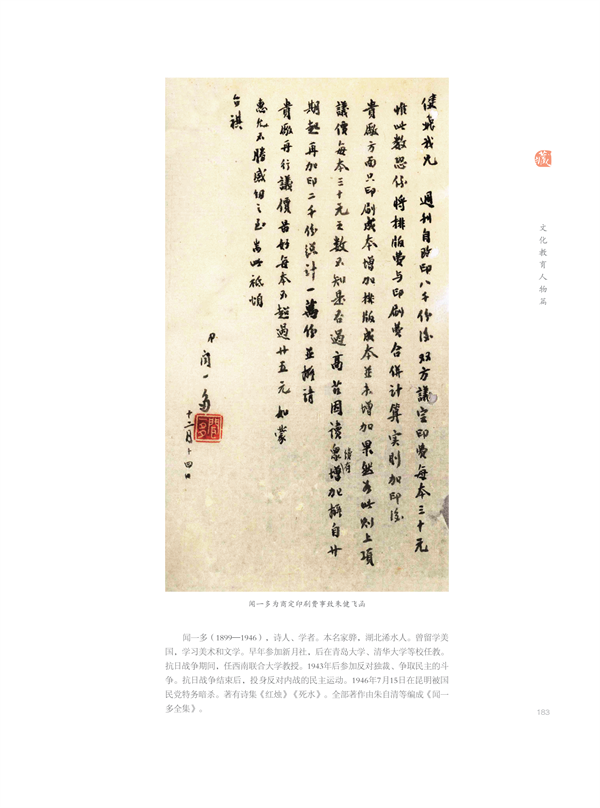 健飛我兄　週刊自改印八千份後双方議定印費每本三十元
惟此数恐係將排版費与印刷費合併計算实則加印後
貴廠方面只印刷成本增加排版成本並未增加果然如此則上項
議價每本三十元之數不知是否過高茲因讀衆增加擬自廿
期起再加印二千份總計一萬份並擬請
貴廠再行議價最好每本不超過廿五元如蒙
惠允不勝感切之至耑此祗頌
台祺
弟聞一多
十二月十四日
聞一多
文化教育人物篇
闻一多为商定印刷费事致朱健飞函
闻一多（1899—1946），诗人、学者。本名家骅，湖北浠水人。曾留学美
国，学习美术和文学。早年参加新月社，后在青岛大学、清华大学等校任教。
抗日战争期间，任西南联合大学教授。1943年后参加反对独裁、争取民主的斗
争。抗日战争结束后，投身反对内战的民主运动。1946年7月15日在昆明被国
民党特务暗杀。著有诗集《红烛》《死水》。全部著作由朱自清等编成《闻一
多全集》。
183